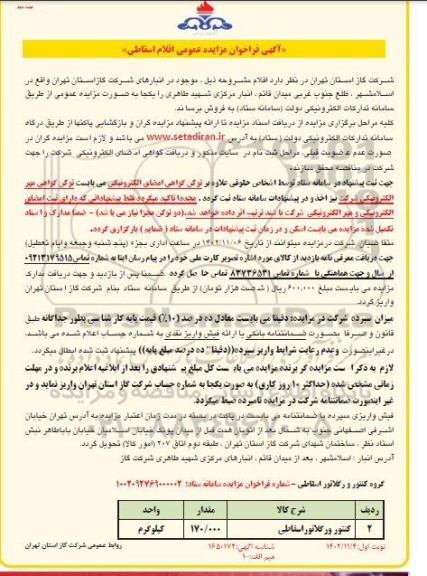 «آگهی فراخوان مزایده عمومی اقلام اسقاطی»
شرکت گاز استان تهران در نظر دارد اقلام مشروحه ذیل ، موجود در انبارهای شرکت گاز استان تهران واقع در
اسلامشهر ، ضلع جنوب غربی میدان قائم ، انبار مرکزی شهید طاهری را یکجا به صورت مزایده عمومی از طریق
سامانه تدارکات الکترونیکی دولت (سامانه ستاد) به فروش برساند.
کلیه مراحل برگزاری مزایده از دریافت اسناد مزایده تا ارائه پیشنهاد مزایده گران و بازگشایی پاکتها از طریق درگاه
سامانه تدارکات الکترونیکی دولت (ستاد) به آدرس www.setadiran.ir می باشد و لازم است مزایده گران در
صورت عدم عضویت قبلی، مراحل ثبت نام در سایت مذکور و دریافت گواهی امضای الکترونیکی شرکت را جهت
شرکت در مناقصه محقق سازند.
جهت ثبت پیشنهاد در سامانه ستاد توسط اشخاص حقوقی علاوه بر توکن گواهی امضای الکترونیکی می بایست توکن گواهی مهر
الکترونیکی شرکت نیز اخذ و در پیشنهادات سامانه ستاد ثبت گردد . مجددا تاکید میگردد فقط پیشنهاداتی که دارای ثبت امضای
الکترونیکی و مهر الکترونیکی شرکت باشند ترتیب اثر داده خواهد شد.(دو توکن مجزا نیاز می باشد) - ضمنا مدارک و اسناد
تکمیل شده مزایده می بایست اسکن و در زمان ثبت پیشنهادات در سامانه ستاد (ضمایم) بارگزاری گردد.
متقاضیان شرکت در مزایده میتوانند از تاریخ ۱۴۰۲/۱۱/۰۶ در ساعت اداری بجزء (پنج شنبه و جمعه و ایام تعطیل)
جهت دریافت معرفی نامه بازدید از کالای مورد اشاره تصویر کارت ملی خود را در پیام رسان ایتا به شماره تماس ۰۹۲۱۳۱۷۹۵۱۵
ارسال و جهت هماهنگی با شماره تماس ۸۳۷۳۶۵۳۱ تماس حاصل گردد .ضمنا پس از بازدید و جهت دریافت مدارک
مزایده می بایست مبلغ ۶۰۰.۰۰۰ ریال (شصت هزار تومان) از طریق سامانه ستاد بنام شرکت گاز استان تهران
واریز گردد.
میزان سپرده شرکت در مزایده: دقیقا می بایست معادل ده درصد (۱۰٪) قیمت پایه کارشناسی بطور جداگانه طبق
قانون و صرفا بصورت ضمانتنامه بانکی یا ارائه فیش واریز نقدی به شماره حساب اعلام شده می باشد.
در غیر اینصورت و عدم رعایت شرایط واریز سپرده((دقیقا" ده درصد مبلغ پایه)) پیشنهاد ثبت شده ابطال میگردد.
لازم به ذکر است مزایده گر برنده مزایده می بایست کل مبلغ پیشنهادی را بعد از ابلاغیه اعلام برنده و در مهلت
زمانی مشخص شده (حداکثر ۱۰ روز کاری) به صورت یکجا به شماره حساب شرکت گاز استان تهران واریز نماید و در
غیر اینصورت ضمانتنامه شرکت در مزایده نامبرده ضبط میگردد.
فیش واریزی سپرده یا ضمانتنامه می بایست در پاکت در بسته در مدت زمان اعتبار مزایده به آدرس تهران خیابان
اشرفی اصفهانی جنوب به شمال بعد از اتوبان همت قبل از میدان پونک خیابان اسلامیان خیابان باباطاهر نبش
استاد نظر ، ساختمان شهدای شرکت گاز استان تهران ، طبقه دوم اتاق ۲۰۷ (امور کالا) تحویل گردد.
آدرس انبار : اسلامشهر ، بعد از میدان قائم ، انبارهای مرکزی شهید طاهری شرکت گاز
گروه کنتور و رگلاتور اسقاطی -شماره فراخوان مزایده سامانه ستاد: ۱۰۰۲۰۹۲۷۶۹۰۰۰۰۰۲
ردیف شرح کالا مقدار واحد
۲ کنتور ورگلاتور اسقاطی ۱۷۰/۰۰۰ کیلوگرم
نوبت اول:۱۴۰۲/۱۱/۴ شناسه آگهی:۱۶۵۰۱۷۲ روابط عمومی شرکت گاز استان تهران